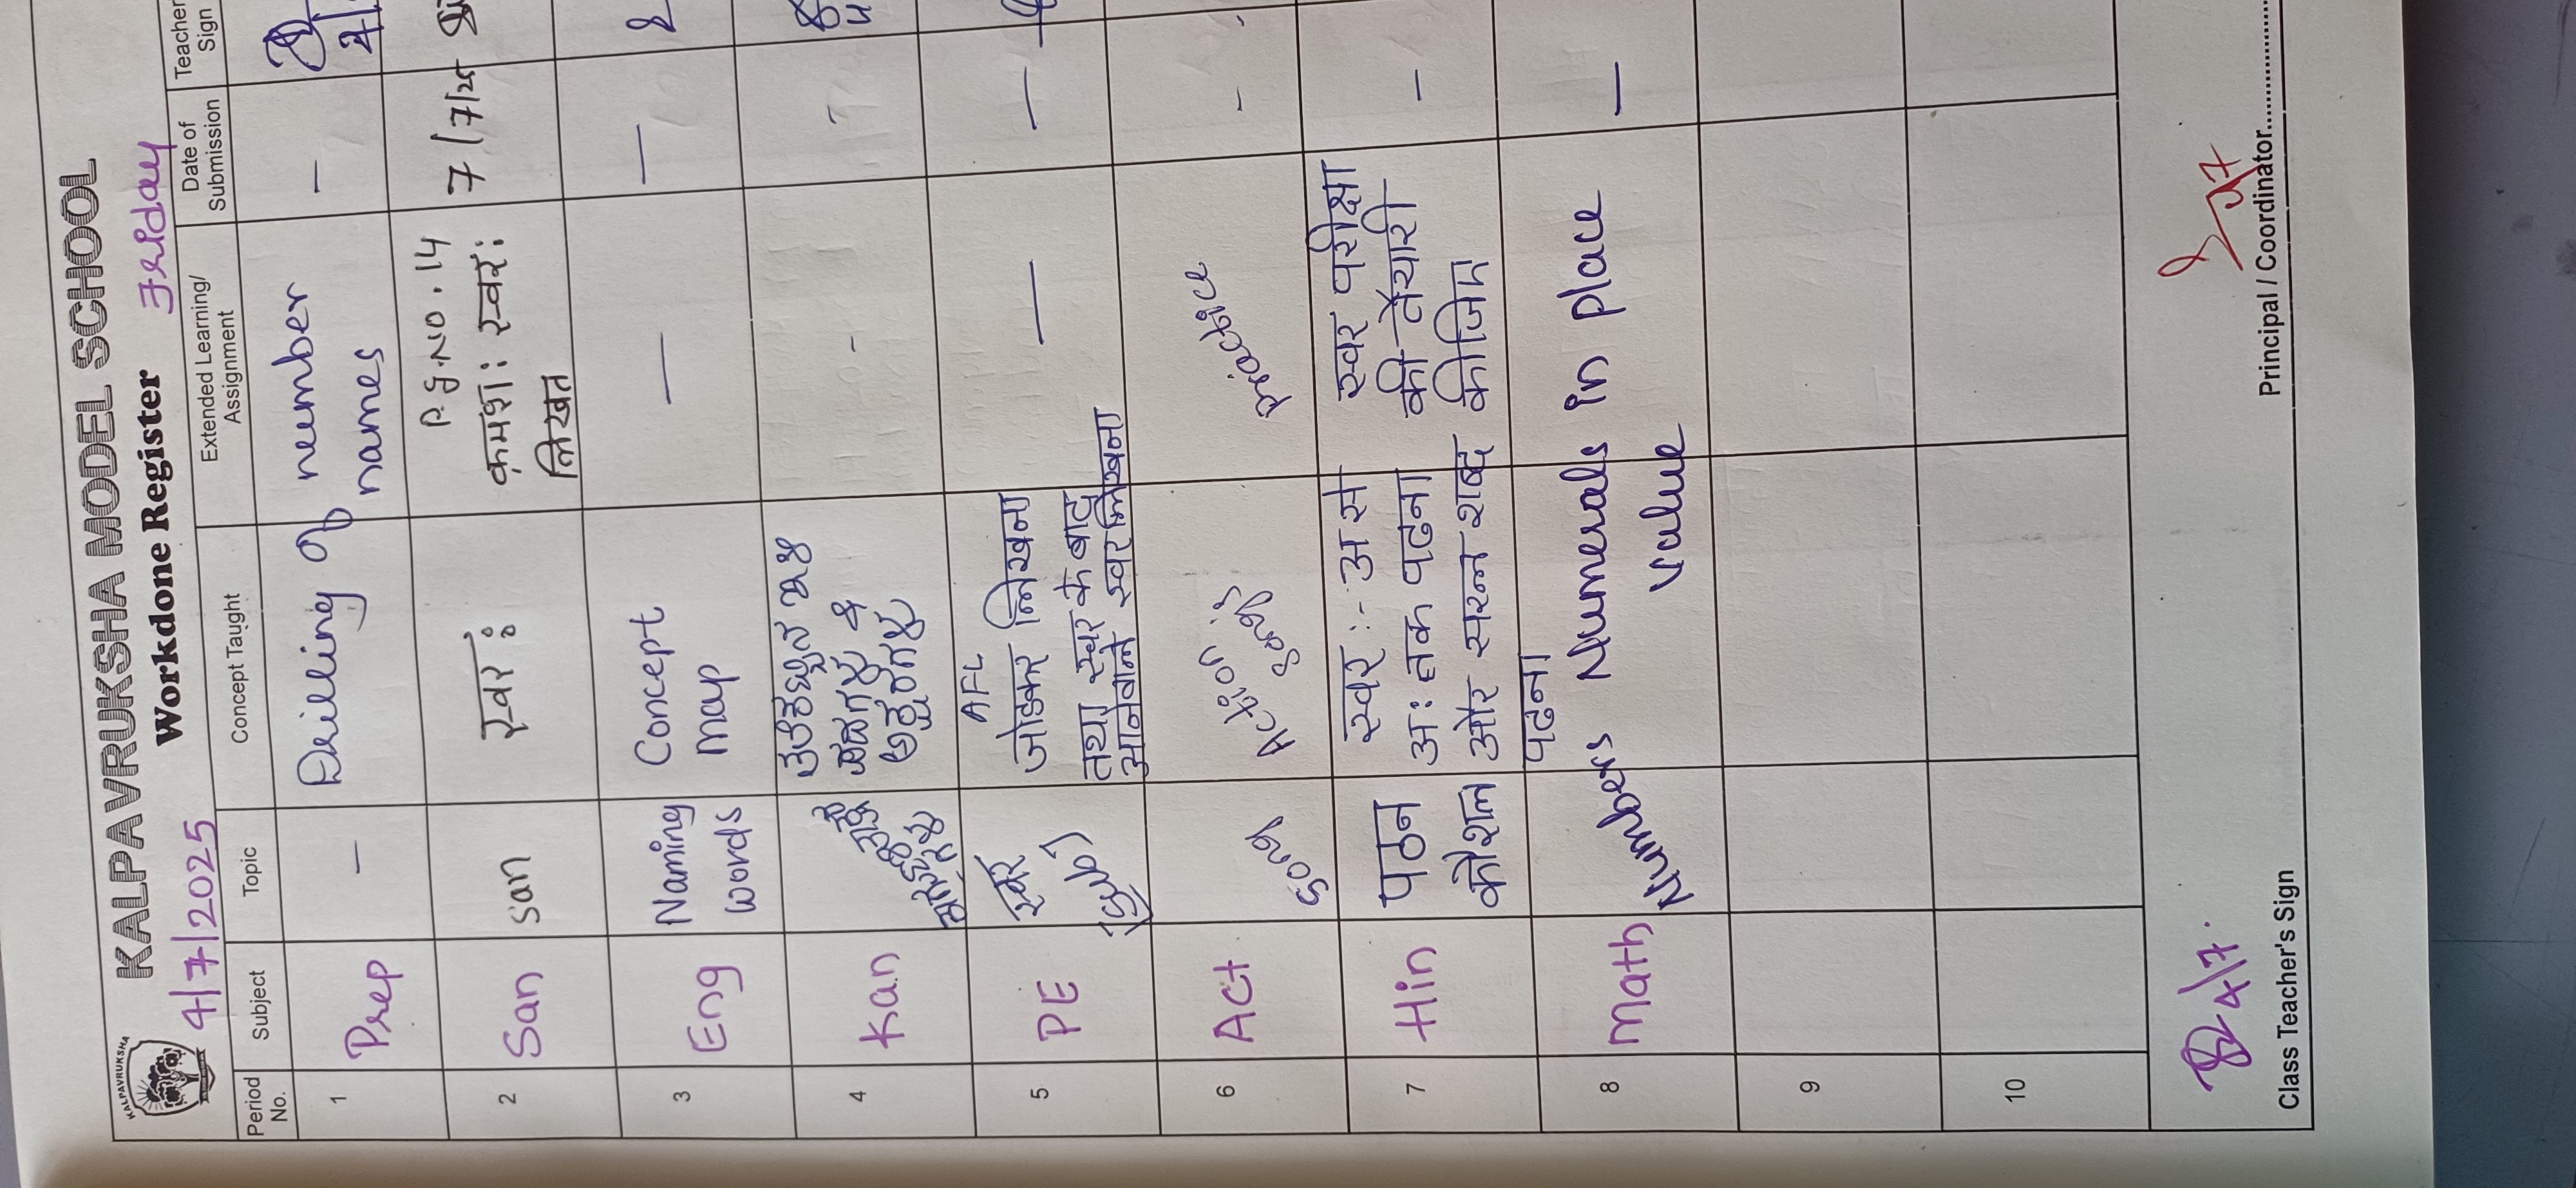 KALPAVRUKSHA
KALPAVRUKSHA MODEL SCHOOL
Workdone Register
4/7/2025 Friday
Period No. Subject Topic Concept Taught Extended Learning/ Assignment Date of Submission Teacher Sign
1 Prep - Drilling of number names -
2 San San स्वर: P.g.NO.14 7/7/25
क्रमश: स्वर:
लिखत
3 Eng Naming Concept - -
words map
4 Kan -
5 PE स्वर AFL - -
जोडकर लिखना
तथा स्वर के बाद
आनेवाले स्वर लिखना
6 Act Song Action practice -
songs
7 Hin पठन स्वर :- अ से स्वर परीक्षा -
कौशल अ: तक पढना की तैयारी
और सरल शब्द कीजिए
पढना
8 Math Numbers Numerals in place -
value
9
10
4/7.
Class Teacher's Sign Principal / Coordinator